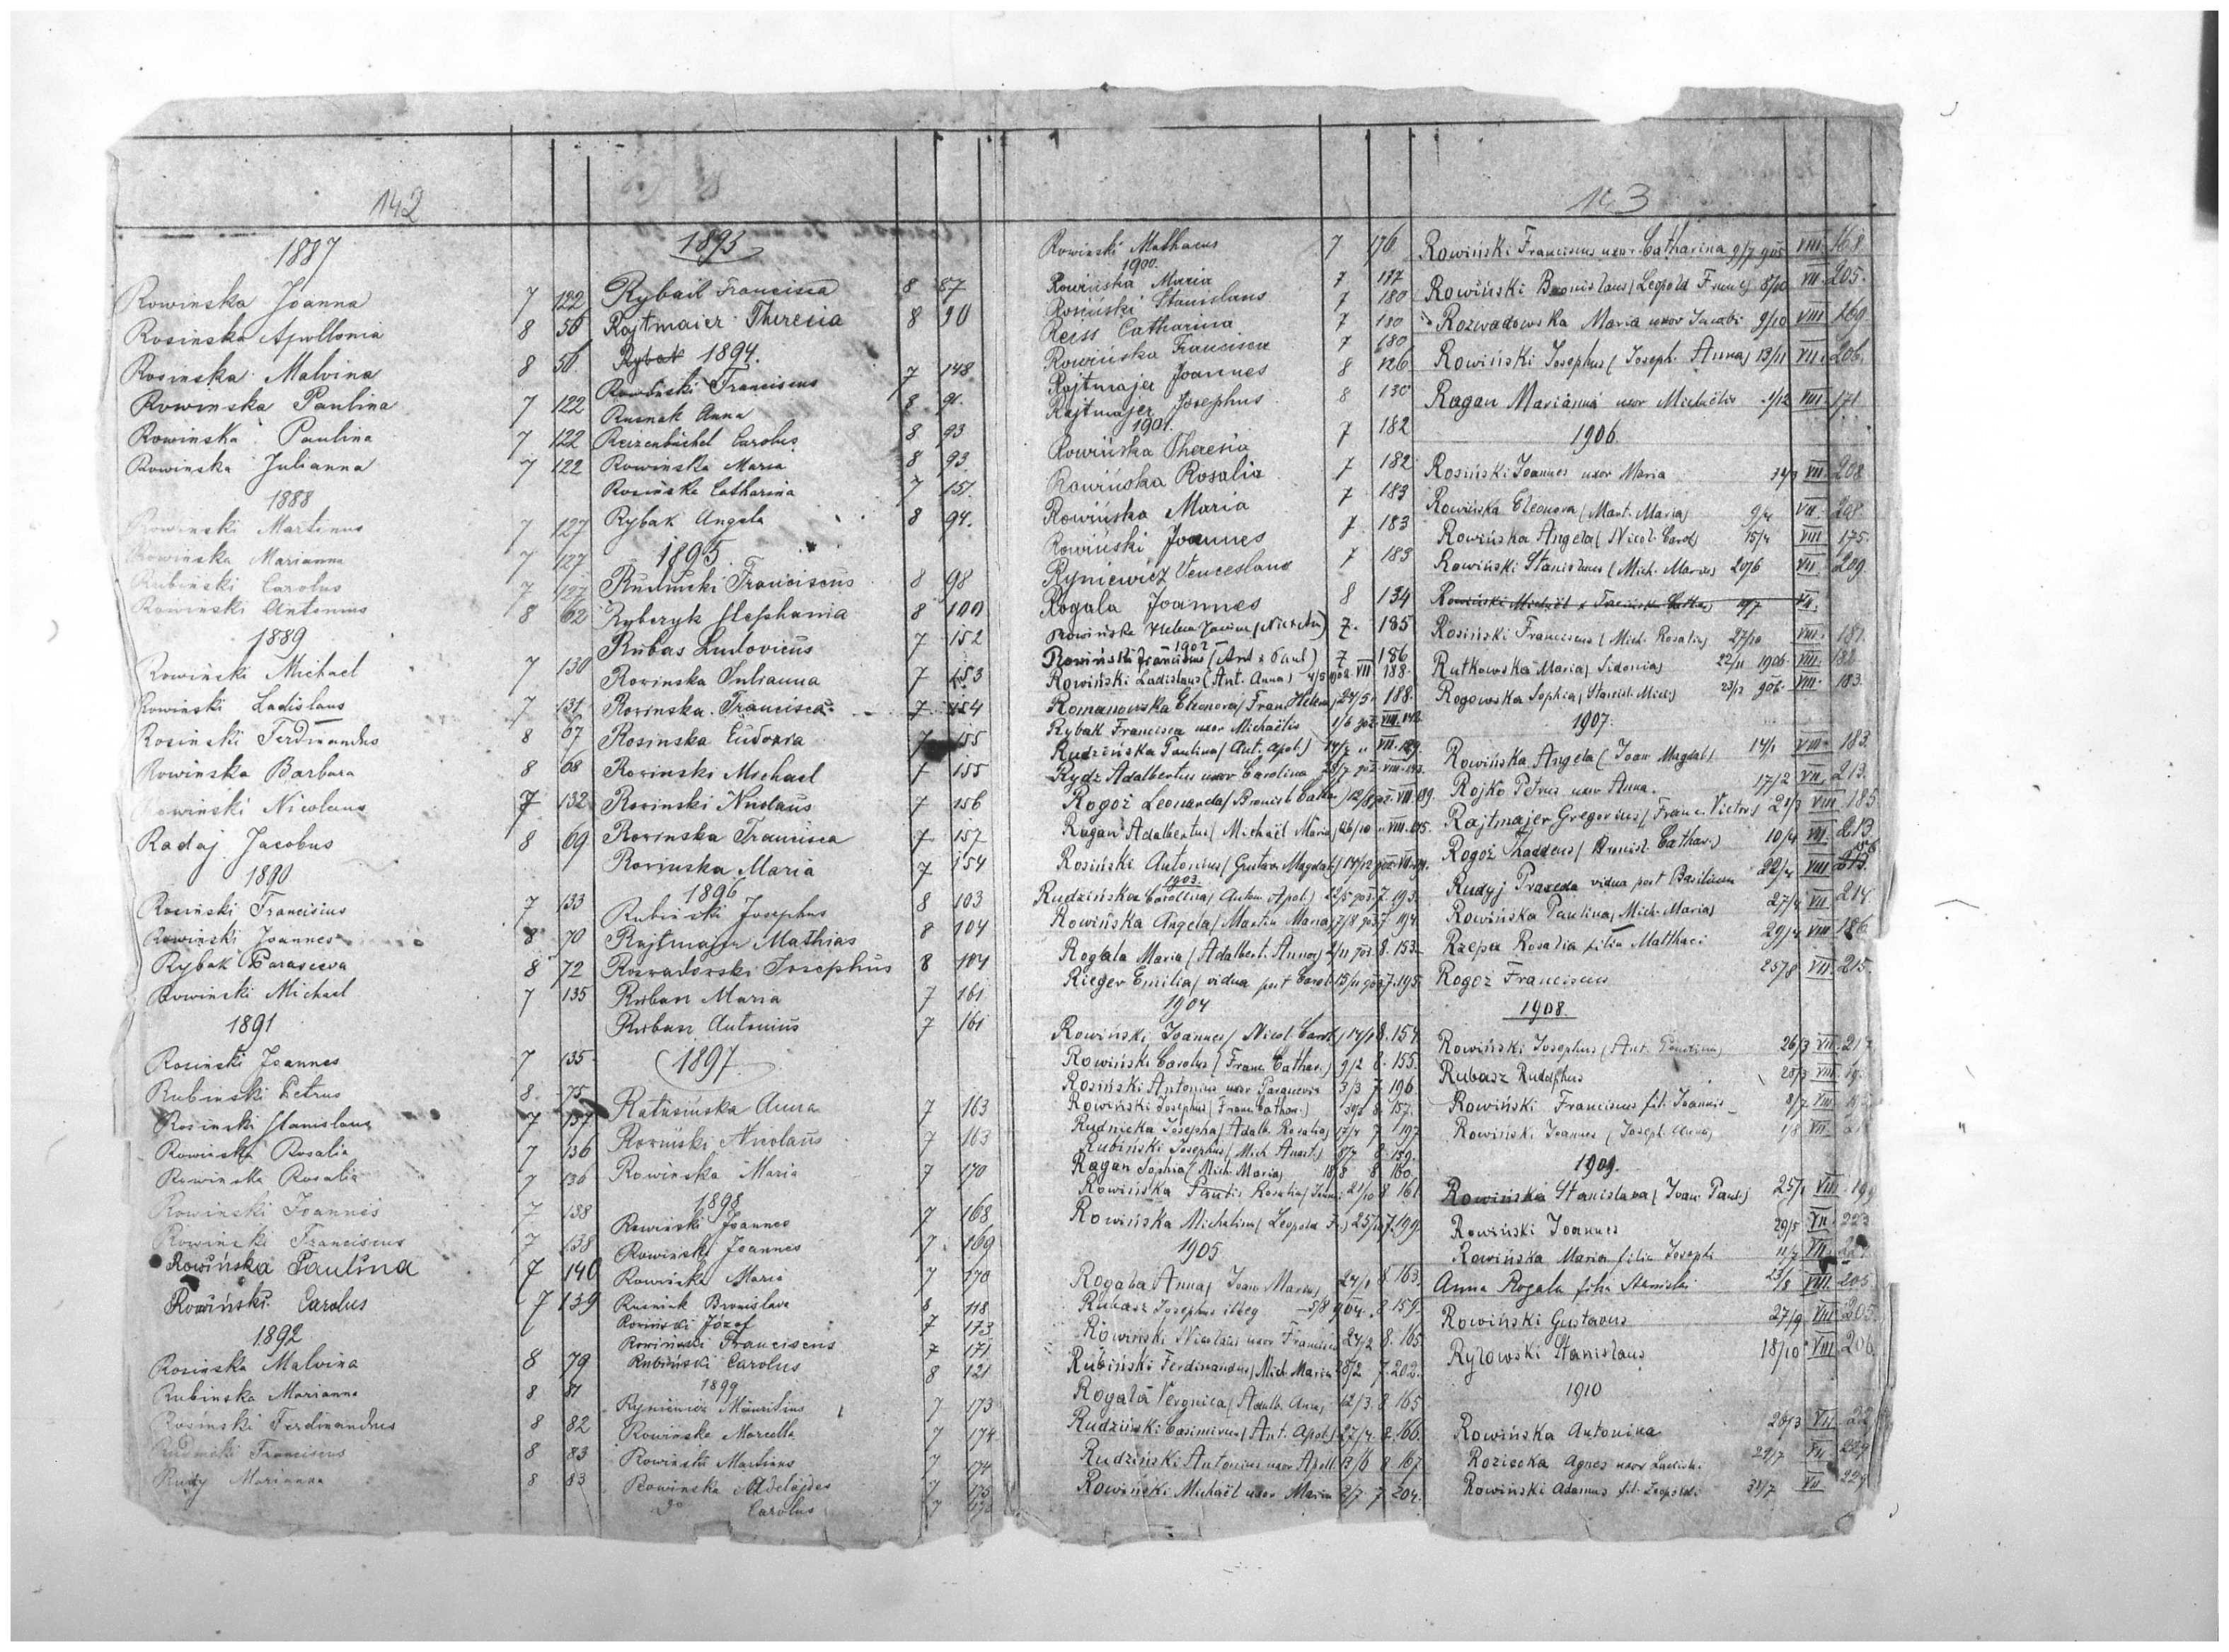 142
1887
Rowinska Joanna 7 122
Rosinska Apollonia 8 56
Rosinska Malvina 8 56
Rowinska Paulina 7 122
Rowinska Paulina 7 122
Rowinska Julianna 7 122
1888
Rowinski Martinus 7 127
Rowinska Marianna 7 127
Rubinski Carolus 7 127
Rowinski Antonius 8 62
1889
Rowinski Michael 7 130
Rowinski Ladislaus 7 131
Rosinski Ferdinandus 8 67
Rowinska Barbara 8 68
Rowinski Nicolaus 7 132
Radaj Jacobus 8 69
1890
Rosinski Franciscus 7 133
Rowinski Joannes 8 70
Rybak Parasceva 8 72
Rowinski Michael 7 135
1891
Rosinski Joannes 7 135
Rubinski Petrus 8 75
Rosinski Stanislaus 7 137
Rowinska Rosalia 7 136
Rowinska Rosalia 7 136
Rowinski Joannes 7 138
Rowinski Franciscus 7 138
Rowińska Paulina 7 140
Rowiński Carolus 7 139
1892
Rosinska Malvina 8 79
Rubinska Marianna 8 81
Rosinski Ferdinandus 8 82
Franciscus 8 83
Rudy Marianna 8 83
1893
Francisca 8 87
Rajtmaier Theresia 8 90
Rybak 1894.
Rowinski Franciscus 7 148
Rusnak Anna 8 91.
Carolus 8 93
Rowinska Maria 8 93
Rosinska Catharina 7 151.
Rybak Angela 8 94.
1895.
Franciscus 8 98
Ryberyk Stephania 8 100
Rubas Ludovicus 7 152
Rowinska Julianna 7 153
Rowinska Francisca 7 154
Rosinska Eudoxia 7 155
Rowinski Michael 7 155
Rowinski Nicolaus 7 156
Rowinska Francisca 7 157
Rowinska Maria 7 154
1896
Rubinski Josephus 8 103
Rajtmajer Mathias 8 104
Rozwadowski Josephus 8 104
Ruban Maria 7 161
Ruban Antonius 7 161
1897
Ratusińska Anna 7 163
Rowiński Nicolaus 7 163
Rowinska Maria 7 170
1898
Rowinski Joannes 7 168
Rowinski Joannes 7 169
Rowinska Maria 7 170
Rusniak Bronislava 8 118
Rowiński Józef 7 173
Rowiński Franciscus 7 171
Rubiński Carolus 8 121
1899
Ryniewicz Mauritius 7 173
Rowinska Marcella 7 174
Rowinski Martinus 7 174
Rowinska Adelajdes 7 175
do Carolus 7
Rowinski Mathaeus 7 176
1900.
Rowinska Maria 7 177
Rosinski Stanislaus 7 180
Reiss Catharina 7 180
Rowińska Francisca 7 180
Rajtmajer Joannes 8 126
Rajtmajer Josephus 8 130
1901.
Rowińska Theresia 7 182
Rowińska Rosalia 7 182
Rowińska Maria 7 183
Rowiński Joannes 7 183
Ryniewicz Venceslaus 7 183
Rogala Joannes 8 134
Rowińska Helena 7. 185
1902
Rowiński Franciscus (Ant. Paul) 7 186
Rowiński Ladislaus (Ant. Anna) 4/5 902 VII 188.
Romanowska Eleonora (Fran. Helena) 24/5 188.
Rybak Francisca uxor Michaëlis 1/6 902. VIII. 142.
Rudzińska Paulina (Ant. Apol.) VII. 189.
Rydz Adalbertus uxor Carolina VIII. 143.
Rogoż Leonarda (Bronisl. Cathar.) 12/8 902. VII. 189.
Ragan Adalbertus (Michaël Maria) 26/10 VIII. 145.
Rosiński Antonius (Gustav. Magdal.) 14/12 902 VII. 191.
1903.
Rudzińska Carolina (Anton. Apol.) 22/5 903 7. 193.
Rowińska Angela (Martin Maria) 7/8 903 7. 194.
Rogala Maria (Adalbert. Anna) 2/11 903 8. 153.
Rieger Emilia vidua post Carol. 15/11 903 7. 195.
1904
Rowiński Joannes (Nicol. Carol.) 14/1 8. 154.
Rowiński Carolus (Franc. Cathar.) 9/2 8. 155.
Rosiński Antonius uxor Parascevia 3/3 7. 196
Rowiński Josephus (Franc. Cathar.) 8. 157.
Rudnicka Josepha (Adalb. Rosalia) 17/4 7 197
Rubiński Josephus (Mich. Anast.) 8/7 8. 159.
Ragan Sophia (Mich. Maria) 18/8 8 160.
Rowińska Rosalia 21/10 8 161
Rowińska Michalina (Leopold. F.) 25/10 7. 199
1905
Rogala Anna (Joan. Maria) 24/1 8. 163.
Rubasz Josephus illeg 5/8 904. 8. 159.
Rowiński Nicolaus uxor Francisca 24/2 8. 165
Rubiński Ferdinandus (Mich. Maria) 28/2 7. 202.
Rogala Veronica (Adalb. Anna) 12/3. 8. 165
Rudziński Casimirus (Ant. Apol.) 27/4. 8. 166.
Rudziński Antonius uxor Apoll. 13/6 8 167
Rowiński Michaël uxor Maria 2/7 7. 204.
143
Rowiński Franciscus uxor Catharina 9/7 905 VIII. 168.
Rowiński Bronislaus (Leopold Franc.) 8/10 VII. 205.
Rozwadowska Maria uxor Jacobi 9/10 VIII 169
Rowiński Josephus (Joseph. Anna) 13/11 VII. 206.
Ragan Marianna uxor Michaëlis 1/12 VIII. 171.
1906
Rosiński Joannes uxor Maria VII. 208
Rowińska Eleonora (Mart. Maria) 9/4 VII. 208.
Rowińska Angela (Nicol. Carol.) 15/4 VIII 175.
Rowiński Stanislaus (Mich. Maria) 20/6 VII. 209.
Rowiński Michaël VII.
Rosiński Franciscus (Mich. Rosalia) 27/10 VIII. 181.
Rutkowska Maria Sidonia 22/11 1906. VIII. 182
Rogowska Sophia (Stanisl. Mich.) 23/12 906. VIII. 183.
1907.
Rowińska Angela (Joan. Magdal.) 14/1 VIII. 183.
Rojko Petrus uxor Anna. 17/2 VII. 213.
Rajtmajer Gregorius (Franc. Victor.) 21/3 VIII. 185
Rogoż Thaddeus (Bronisl. Cathar.) 10/4 VII. 213.
Rudyj Praxeda vidua post Basilium 22/4 VIII
Rowińska Paulina (Mich. Maria) 27/4 VII. 214.
Rzepa Rosalia filia Matthaei 29/4 VIII 186.
Rogoż Franciscus 25/8 VII. 215.
1908.
Rowiński Josephus (Ant. Paulina) 26/3 VII. 217.
Rubasz Rudolphus VIII.
Rowiński Franciscus fil. Joannis 8/7 VIII
Rowiński Joannes (Joseph. Anna) 1/8 VII.
1909.
Rowińska Stanislava (Joan. Paul.) 25/1 VIII. 199
Rowiński Joannes 29/5 VII. 223
Rowińska Maria filia Josephi 11/7 VII.
Anna Rogala filia Stanislai VIII. 205
Rowiński Gustavus 27/9 VIII 205.
Ryłowski Stanislaus 18/10 VIII 206.
1910
Rowińska Antonina 26/3 VII.
Rozicka Agnes uxor Ladisl. 22/7 VII 229
Rowiński Adamus fil. Leopoldi 31/7 VII 229